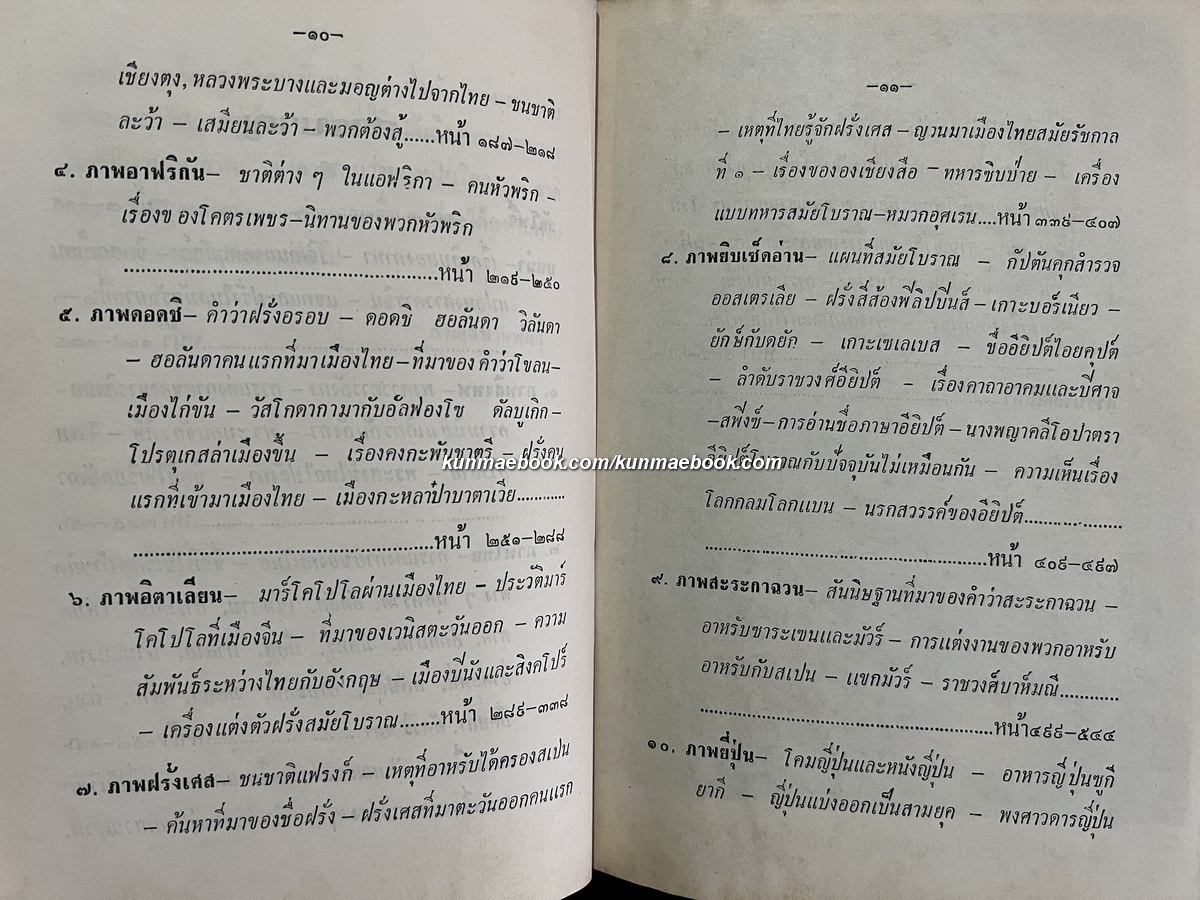 —๑๐—
เชียงตุง, หลวงพระบางและมอญต่างไปจากไทย – ชนชาติ
ละว้า – เสมียนละว้า – พวกต้องสู้......หน้า ๑๘๗–๒๑๘
๔. ภาพอาฟริกัน– ชาติต่าง ๆ ในแอฟริกา – คนหัวพริก –
เรื่องของโคตรเพชร–นิทานของพวกหัวพริก
....................................................หน้า ๒๑๙–๒๕๐
๕. ภาพดอดชิ–คำว่าฝรั่งอรอบ – ดอดชิ ฮอลันดา วิลันดา
– ฮอลันดาคนแรกที่มาเมืองไทย–ที่มาของคำว่าโขลน–
เมืองไก่ขัน – วัสโกดากามากับอัลฟองโซ ดัลบูเกิก–
โปรตุเกสล่าเมืองขึ้น – เรื่องคงกะพันชาตรี – ฝรั่งคน
แรกที่เข้ามาเมืองไทย – เมืองกะหลาป๋าบาตาเวีย............
....................................................หน้า ๒๕๑–๒๘๘
๖. ภาพอิตาเลียน– มาร์โคโปโลผ่านเมืองไทย – ประวัติมาร์
โคโปโลที่เมืองจีน – ที่มาของเวนิสตะวันออก – ความ
สัมพันธ์ระหว่างไทยกับอังกฤษ – เมืองปีนังและสิงคโปร์
– เครื่องแต่งตัวฝรั่งสมัยโบราณ........หน้า ๒๘๙–๓๓๘
๗. ภาพฝรั่งเศส– ชนชาติแฟรงก์ – เหตุที่อาหรับได้ครองสเปน
– ค้นหาที่มาของชื่อฝรั่ง – ฝรั่งเศสที่มาตะวันออกคนแรก
—๑๑—
– เหตุที่ไทยรู้จักฝรั่งเศส –ญวนมาเมืองไทยสมัยรัชกาล
ที่ ๑ – เรื่องขององเชียงสือ – ทหารซิบป่าย – เครื่อง
แบบทหารสมัยโบราณ–หมวกอุศเรน....หน้า ๓๓๙–๔๐๗
๘. ภาพยิบเซ็ดอ่าน– แผนที่สมัยโบราณ – กัปตันคุกสำรวจ
ออสเตรเลีย – ฝรั่งสี่ส้องฟิลิปปินส์ –เกาะบอร์เนียว –
ยักษ์กับดยัก – เกาะเซเลเบส – ชื่ออียิปต์ไอยคุปต์
– ลำดับราชวงศ์อียิปต์ – เรื่องคาถาอาคมและปีศาจ
–สฟิงซ์–การอ่านชื่อภาษาอียิปต์–นางพญาคลีโอปาตรา
อียิปต์โบราณกับปัจจุบันไม่เหมือนกัน – ความเห็นเรื่อง
โลกกลมโลกแบน – นรกสวรรค์ของอียิปต์..................
..............................................หน้า ๔๐๙–๔๙๗
๙. ภาพสะระกาฉวน– สันนิษฐานที่มาของคำว่าสะระกาฉวน –
อาหรับซาระเซนและมัวร์ – การแต่งงานของพวกอาหรับ
อาหรับกับสเปน – แขกมัวร์ – ราชวงศ์บาห์มณี............
................................................หน้า๔๙๙–๕๔๔
๑๐. ภาพยี่ปุ่น– โคมญี่ปุ่นและหนังญี่ปุ่น – อาหารญี่ปุ่นซูกี
ยากี – ญี่ปุ่นแบ่งออกเป็นสามยุค – พงศาวดารญี่ปุ่น
kunmaebook.com/kunmaebook.com